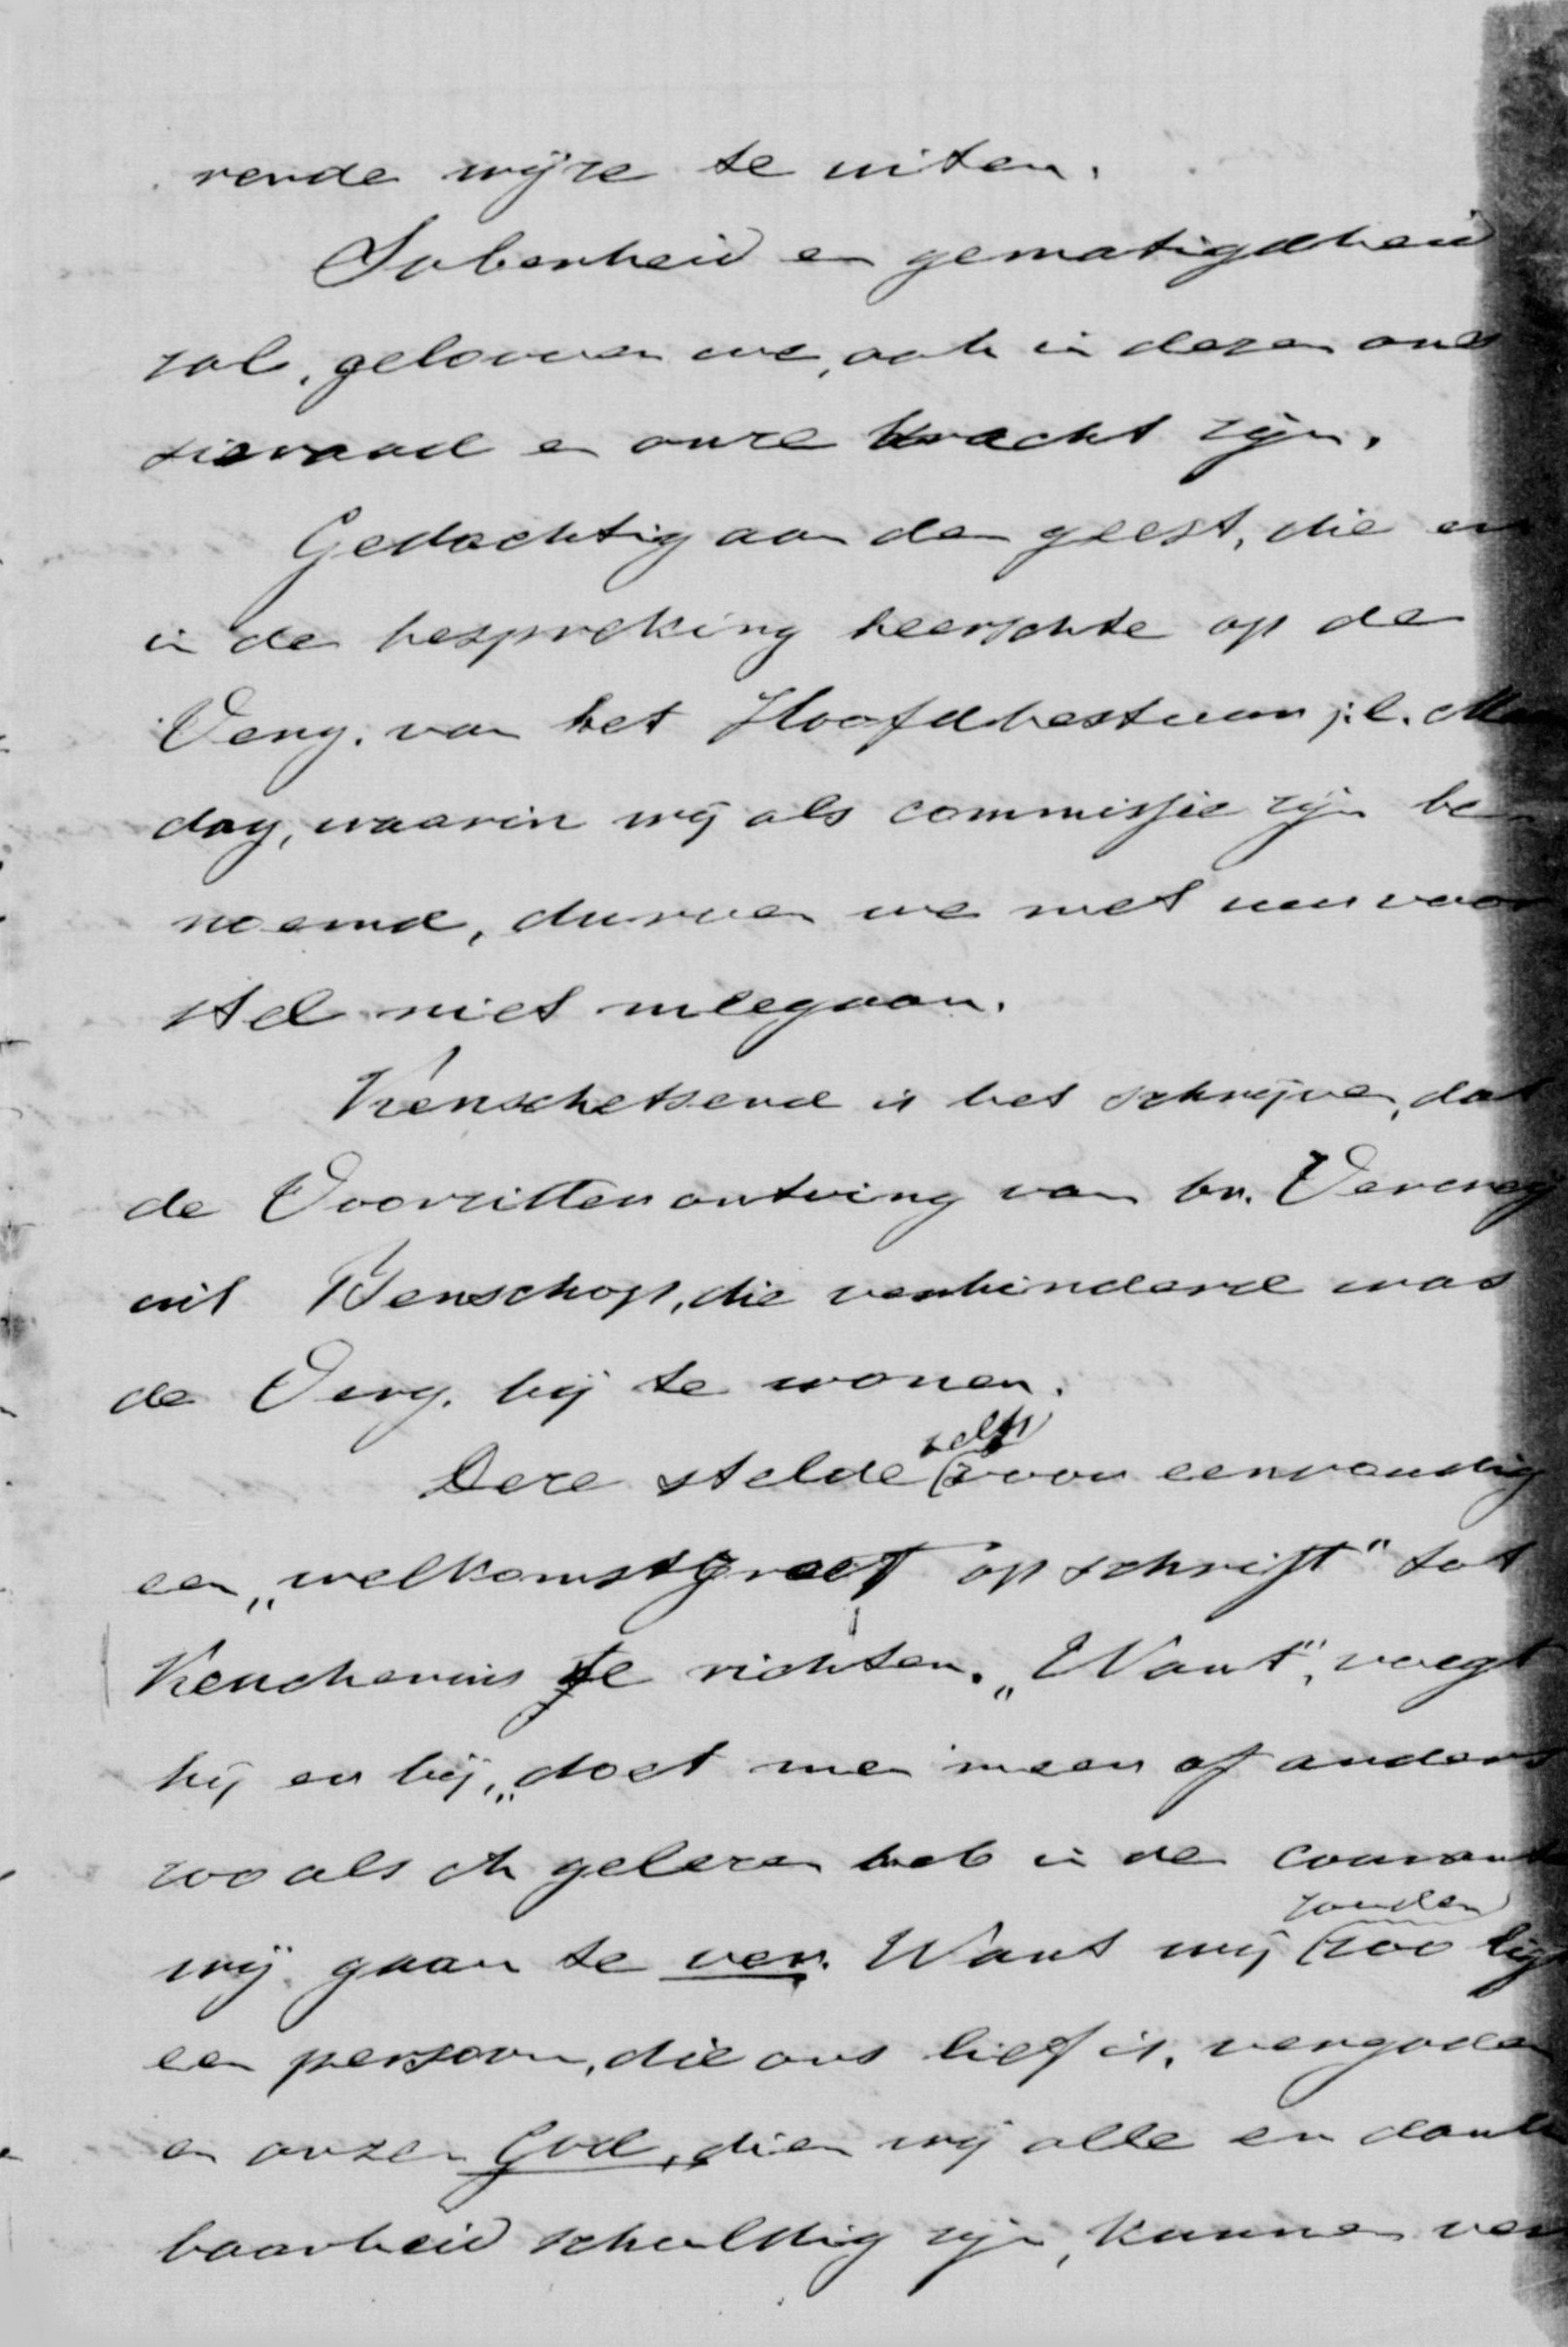 rende wijze te uiten.
Soberheid en gematigdheid
zal, gelooven we, ook in dezen ons
sieraad en onze kracht zijn.
Gedachtig aan den geest, die er
in de bespreking heerschte op de
Verg. van het Hoofdbestuur j.l. Maan
dag, waarin wij als commissie zijn be-
noemd, durven we met uw voor
stel niet meegaan.
Kenschetsend is het schrijven, dat
de Voorzitter ontving van br.
uit Benschop, die verhinderd was
de Verg. bij te wonen.
zelfs
Deze stelde voor eenvoudig
een „welkomstgroet op schrift" tot
Keuchenius te richten. „Want", voegt
hij er bij, „doet men meer of anders
zooals ik gelezen heb in de courant
zouden
wij gaan te ver. Want wij zoo lig
een persoon, die ons lief is, vergoden
en onzen God, dien wij alle eer dank
baarheid schuldig zijn, kunnen ver